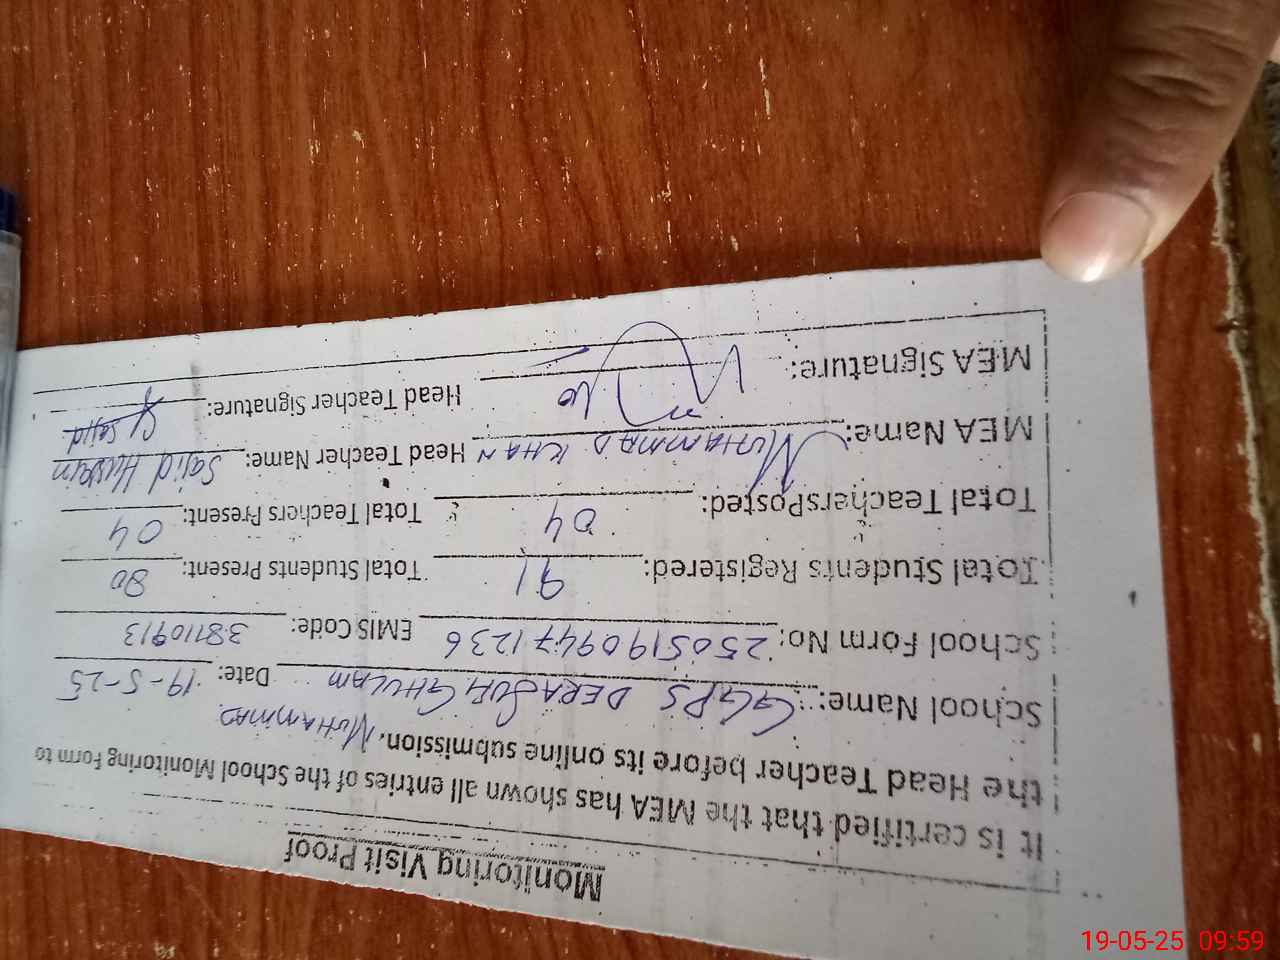 Monitoring Visit Proof
It is certified that the MEA has shown all entries of the School Monitoring Form to
the Head Teacher before its online submission. MUHAMMAD
School Name: GGPS DERA SUFI GHULAM Date: 19-5-25
School Form No: 2505190947 1236 EMIS Code: 38110913
Total Students Registered: 91 Total Students Present: 80
Total TeachersPosted: 04 Total Teachers Present: 04
MEA Name: MUHAMMAD KHAN Head Teacher Name: Sajid Hussain
MEA Signature: Head Teacher Signature: Sajid
19-05-25 09:59